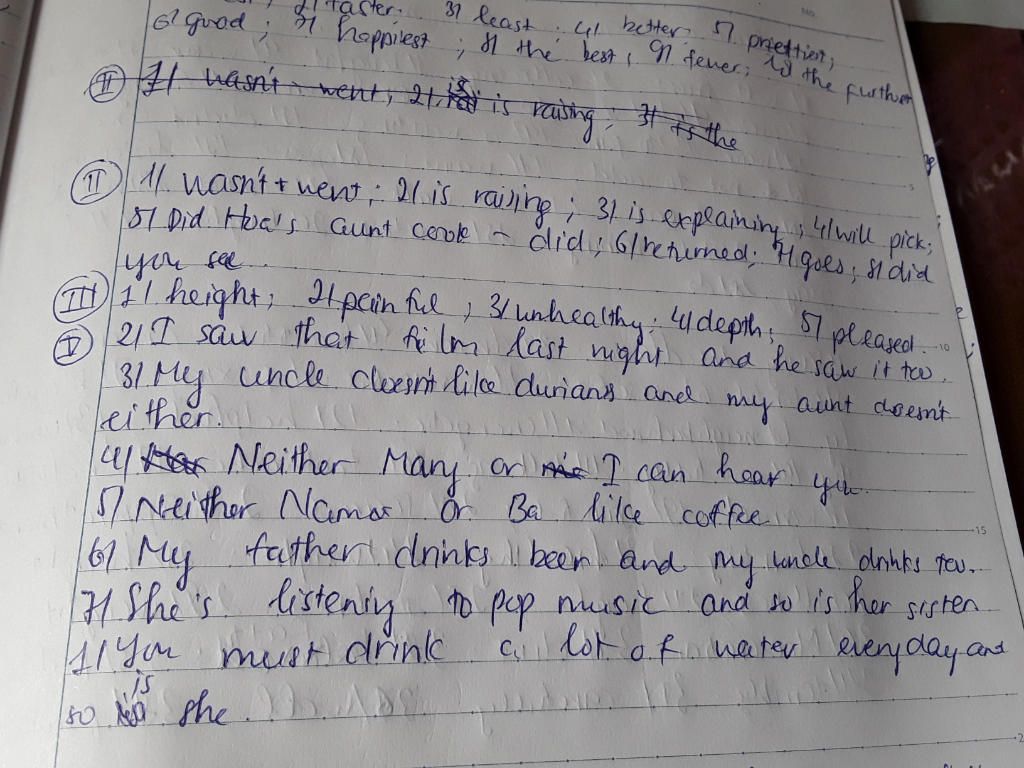 2/ faster; 3/ least; 4/ better; 5/ priettiest;
6/ good; 7/ happiest; 8/ the best; 9/ fewer; 10 the further
II 1/ wasn't - went; 2/ is raising; 3/ is the
II 1/ wasn't + went; 2/ is raising; 3/ is explaining; 4/ will pick;
5/ Did Hoa's aunt cook - did; 6/ returned; 7/ goes; 8/ did
you see
III 1/ height; 2/ painful; 3/ unhealthy; 4/ depth; 5/ pleased.
V 2/ I saw that film last night and he saw it too.
3/ My uncle doesn't like durians and my aunt doesn't
either.
4/ Neither Mary or I can hear you.
5/ Neither Nam or Ba like coffee
6/ My father drinks beer and my uncle drinks too.
7/ She's listening to pop music and so is her sister
1/ You must drink a lot of water everyday and
so is she.